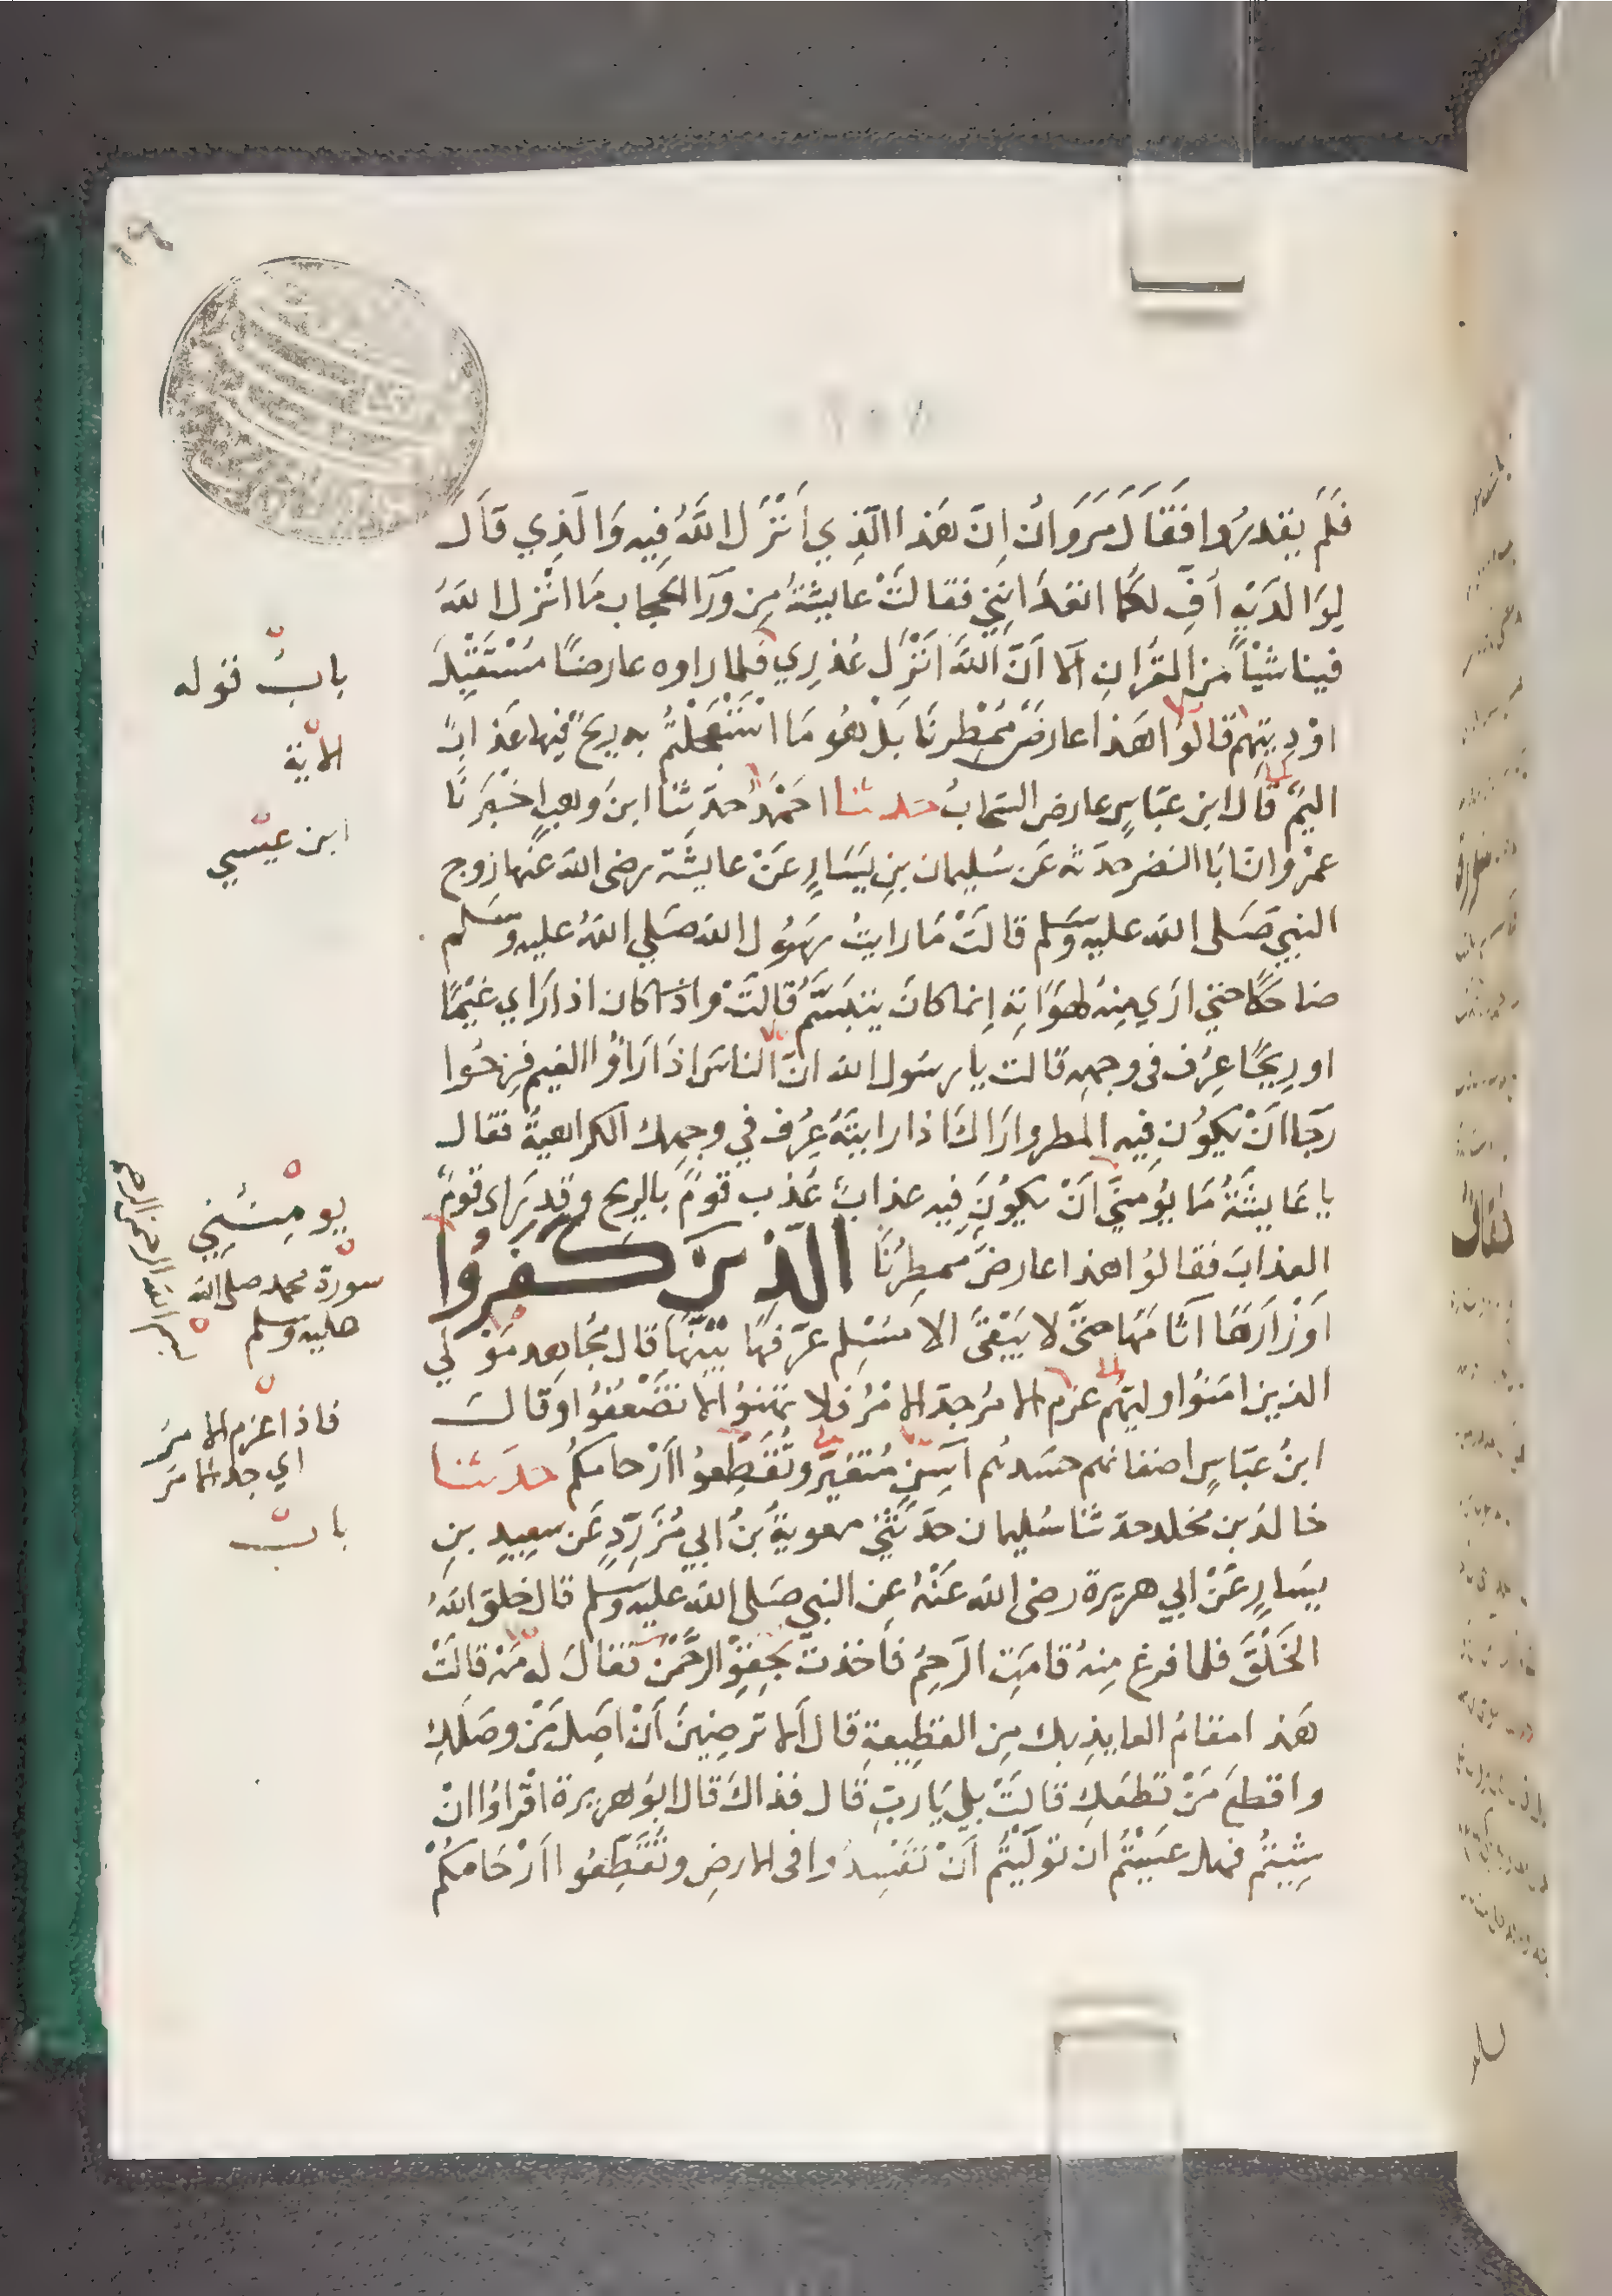 ١٩
فَلَم يقدرُوا فَقَالَ مَرَوانُ اِنّ هَذا الّذِي اَنْزَلَ اللَّهُ فِيهِ وَالَّذِي قَالَ
لِوَالدَيْهِ اُفٍّ لكُمَا اتعدَانِنِي فقالتْ عايشَةُ مِن وَرَآ الحجاب مَا اَنْزل اللهُ
فينا شَيْاً من القُرانِ الا اَنَّ اللهَ اَنْزَل عُذرِي فلما راوه عارضًا مُسْتَقْبِلَ
اوْدِيتِهم قالوُا هَذا عارضٌ مُمْطِرنَا بَلْ هُو مَا اسْتَعْجَلْتُمْ به رِيحٌ فيها عَذابٌ
اليمٌ قال ابن عَبّاسٍ عارض السّحابُ حدثنا احمَدُ حدّثنا ابنُ وَهبٍ اخبَرَنَا
عمْرو انّ اَبَا النضر حدّثه عَن سُليمان بنِ يَسَارٍ عَنْ عايشة رضى الله عَنها زوج
النبيّ صَلى الله عليه وسَلم قالتْ مَا رايتُ رسُول الله صَلي اللهُ عليه وسَلم
ضاحكًا حتي ارَي مِنهُ لهوَاتِهِ اِنما كانَ يتبَسَّمُ قالتْ واذا كان اذا رَاي غيْمًا
او رِيحًا عِرُف في وجههِ قالت يا رسُول الله انّ الناسَ اذَا رَاوُا الغيم فرِحُوا
رَجَا اَنْ يكوُن فِيه المطر وارَاكَ اذا رايتَهُ عِرُف في وجهك الكراهيةُ فقال
يا عَايشَةُ مَا يُؤمِنّي اَنْ يكوُنَ فِيه عذابٌ عُذب قوْمٌ بالريح وقد رَاي قومٌ
العذابَ فقالوُا هذا عارضٌ ممطِرُنَا الَّذِينَ كَفَرُوا
اَوْزَارَهَا آثامَهَا حتَّى لا يَبْقَى الا مُسْلِم عرّفهَا بَيَّنهَا قال مُجَاهد مَوْلي
الذين امَنُوا وليّهُم عزم الامرُ جدّ الامْرُ فلا تهنوُا لا تَضْعُفُوا وَقال
ابنُ عبّاسٍ اضغانهم حسَدهُم آسِنٍ مُتغَيّر وتُقَطِّعوُا اَرْحامكُم حدَثنا
خالدُ بن مَخلد حدثنا سُليمان حدّثَنِي معوية بنُ ابي مُزَرِّدٍ عَن سعِيدِ بنِ
يسَارٍ عَنْ ابي هريرة رضى الله عَنْهُ عن النبي صَلى الله عليه وسَلم قال خلق اللهُ
الخَلْقَ فلما فرغ مِنهُ قامَتِ الرّحِمُ فأخذتْ بحِقْوِ الرَّحْمٰن فقالَ لهُ مَهْ قالَتْ
هَذا مقامُ العايذِ بك مِن القطِيعةِ قال اَلا ترضِينَ اَنْ اصِل مَن وصَلكِ
واقطعَ مَنْ قطعَكِ قالتْ بلي يَا ربِّ قال فذاكَ قال ابوُ هريرة اقْرَاوُا انْ
شِيتُم فهل عسَيْتُم ان توَلّيتُم اَنْ تفْسِدُوا في الارضِ وتُقَطِّعُوا اَرْحَامكُمْ
بابُ قوله
الاية
ابن عيسي
يومِنُنِي
سورة محمد صلى الله
عليه وسلم
بسم الله الرحمن الرحيم
فاذا عزم الامرُ
اي جد الامرُ
باب